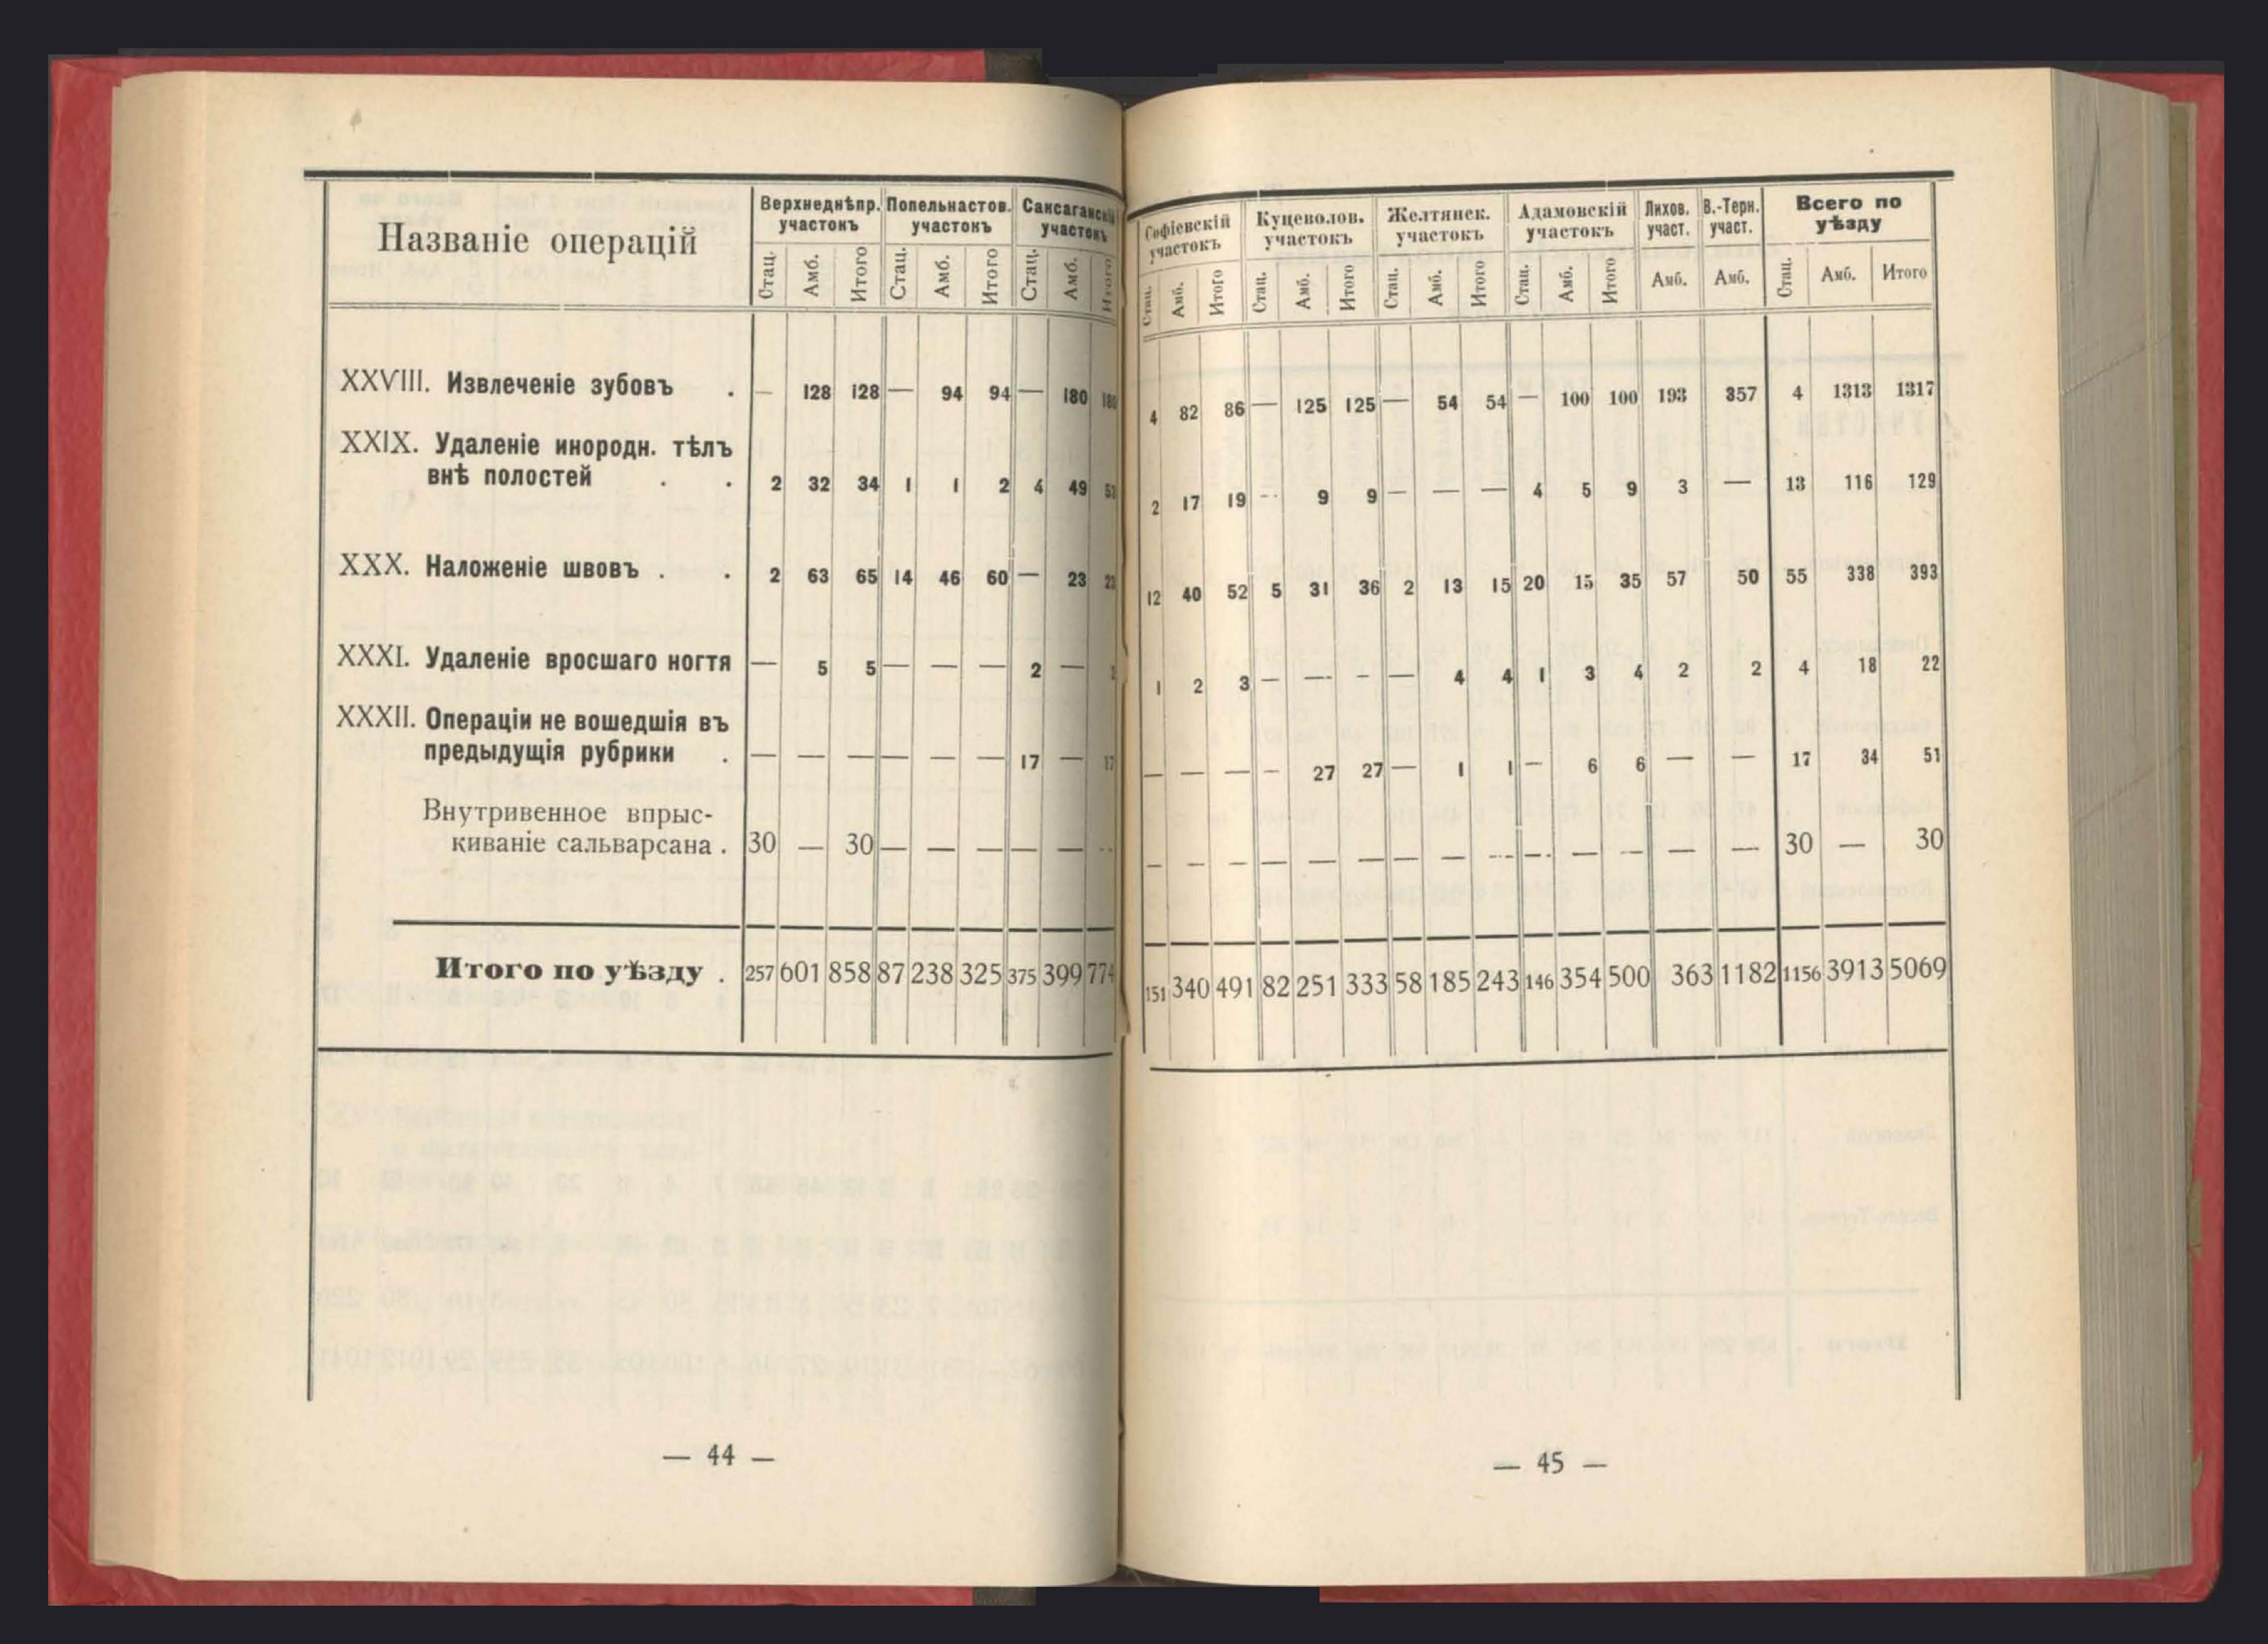 Названіе операцій
Верхнеднѣпр. участокъ Попельнастов. участокъ Саксаганскій участокъ
Стац. Амб. Итого Стац. Амб. Итого Стац. Амб. Итого
XXVIII. Извлеченіе зубовъ . — 128 128 — 94 94 — 180 180
XXIX. Удаленіе инородн. тѣлъ
внѣ полостей . . 2 32 34 1 1 2 4 49 53
XXX. Наложеніе швовъ . . 2 63 65 14 46 60 — 23 23
XXXI. Удаленіе вросшаго ногтя — 5 5 — — — 2 — 2
XXXII. Операціи не вошедшія въ
предыдущія рубрики . — — — — — — 17 — 17
Внутривенное впрыс-
киваніе сальварсана . 30 — 30 — — — — — —
Итого по уѣзду . 257 601 858 87 238 325 375 399 774
— 44 —
Софіевскій участокъ Куцеволов. участокъ Желтянск. участокъ Адамовскій участокъ Лихов. участ. В.-Терн. участ. Всего по уѣзду
Стац. Амб. Итого Стац. Амб. Итого Стац. Амб. Итого Стац. Амб. Итого Амб. Амб. Стац. Амб. Итого
4 82 86 — 125 125 — 54 54 — 100 100 193 357 4 1313 1317
2 17 19 — 9 9 — — — 4 5 9 3 — 13 116 129
12 40 52 5 31 36 2 13 15 20 15 35 57 50 55 338 393
1 2 3 — — — — 4 4 1 3 4 2 2 4 18 22
— — — — 27 27 — 1 1 — 6 6 — — 17 34 51
— — — — — — — — — — — — — — 30 — 30
151 340 491 82 251 333 58 185 243 146 354 500 363 1182 1156 3913 5069
— 45 —